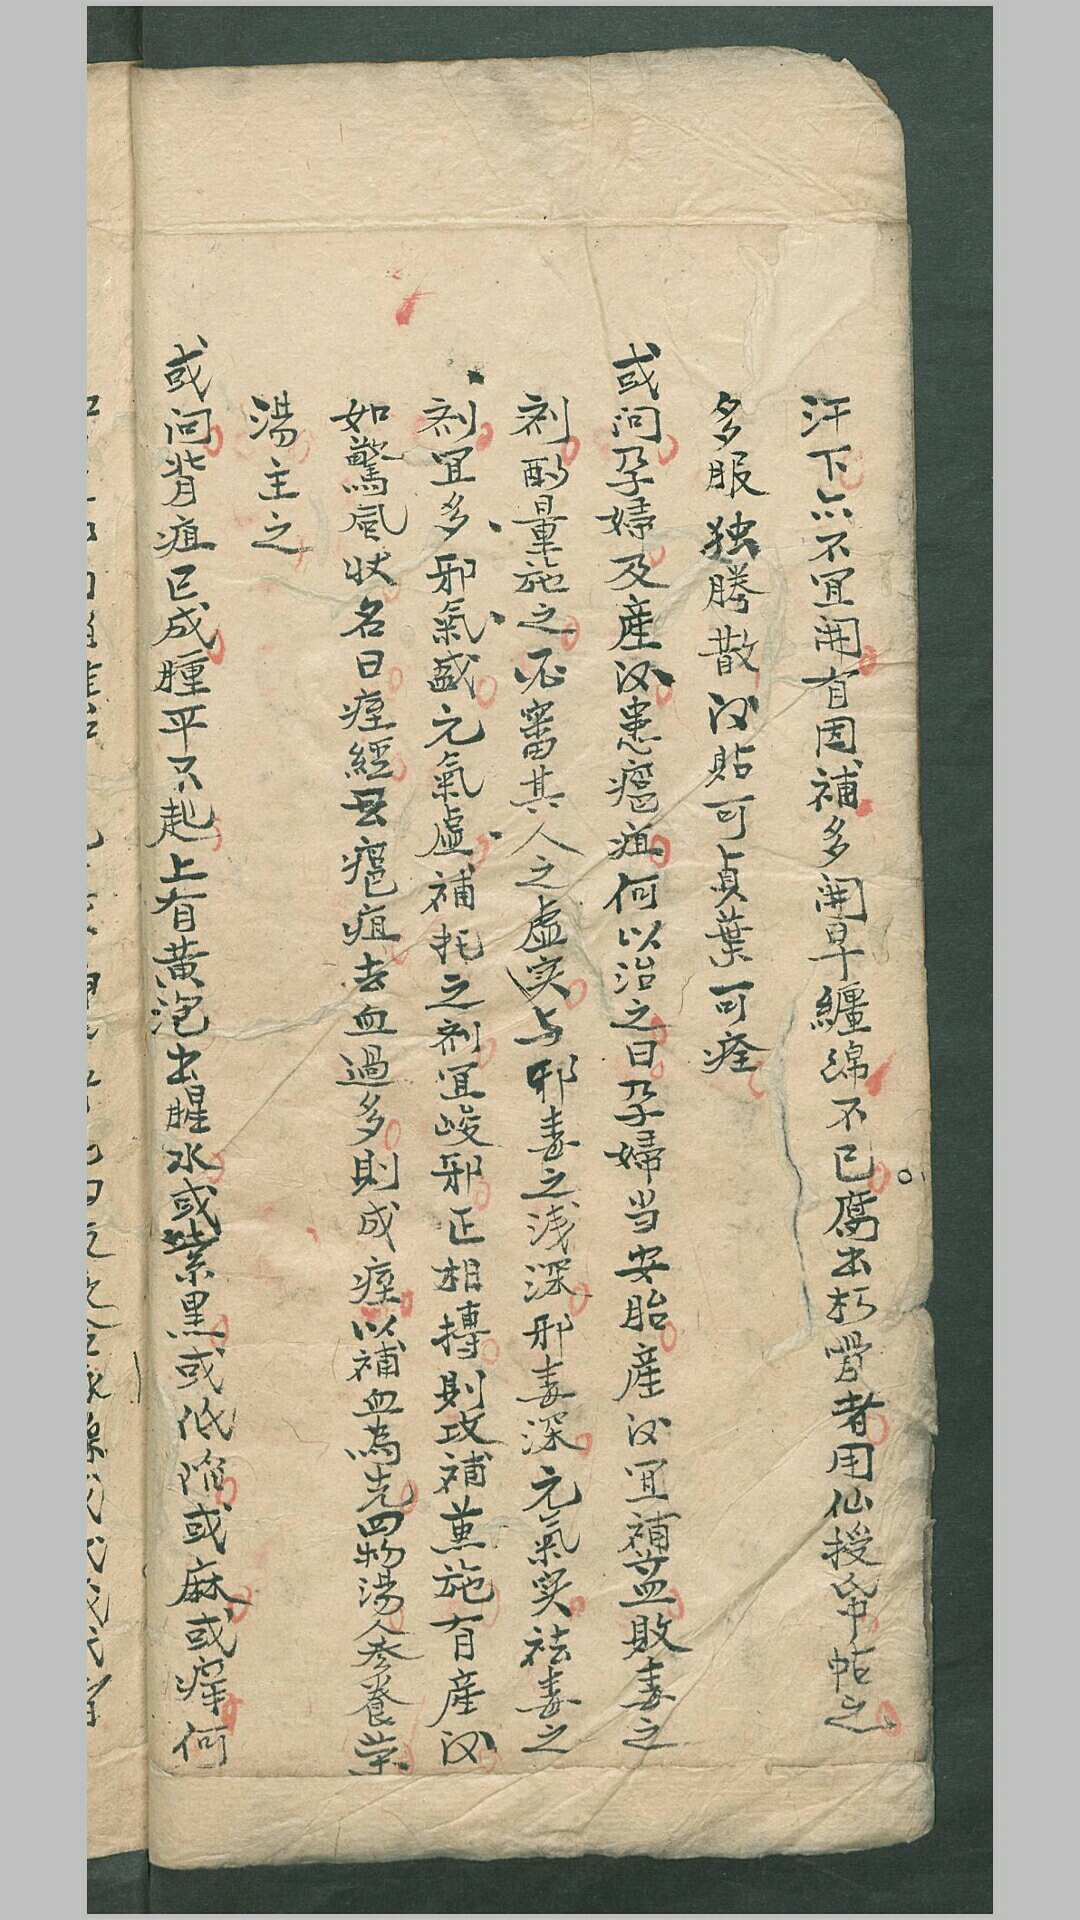 汗下亦不宜開有因補多開早纏綿不已腐出朽骨者用仙授帖之
多服独勝散次貼可貞葉可痊
或问孕婦及産後患癰疽何以治之曰孕婦当安胎産後宜補益敗毒之
剂酌量施之必審其人之虚实与邪毒之浅深邪毒深元氣实祛毒之
剂宜多邪氣盛元氣虚補托之剂宜峻邪正相搏則攻補兼施有産後
如驚風狀名曰痙經云瘡疽去血過多則成痙以補血為先四物湯人參養栄
湯主之
或问背疽已成腫平不起上有黄泡出腥水或紫黒或低陷或麻或痒何